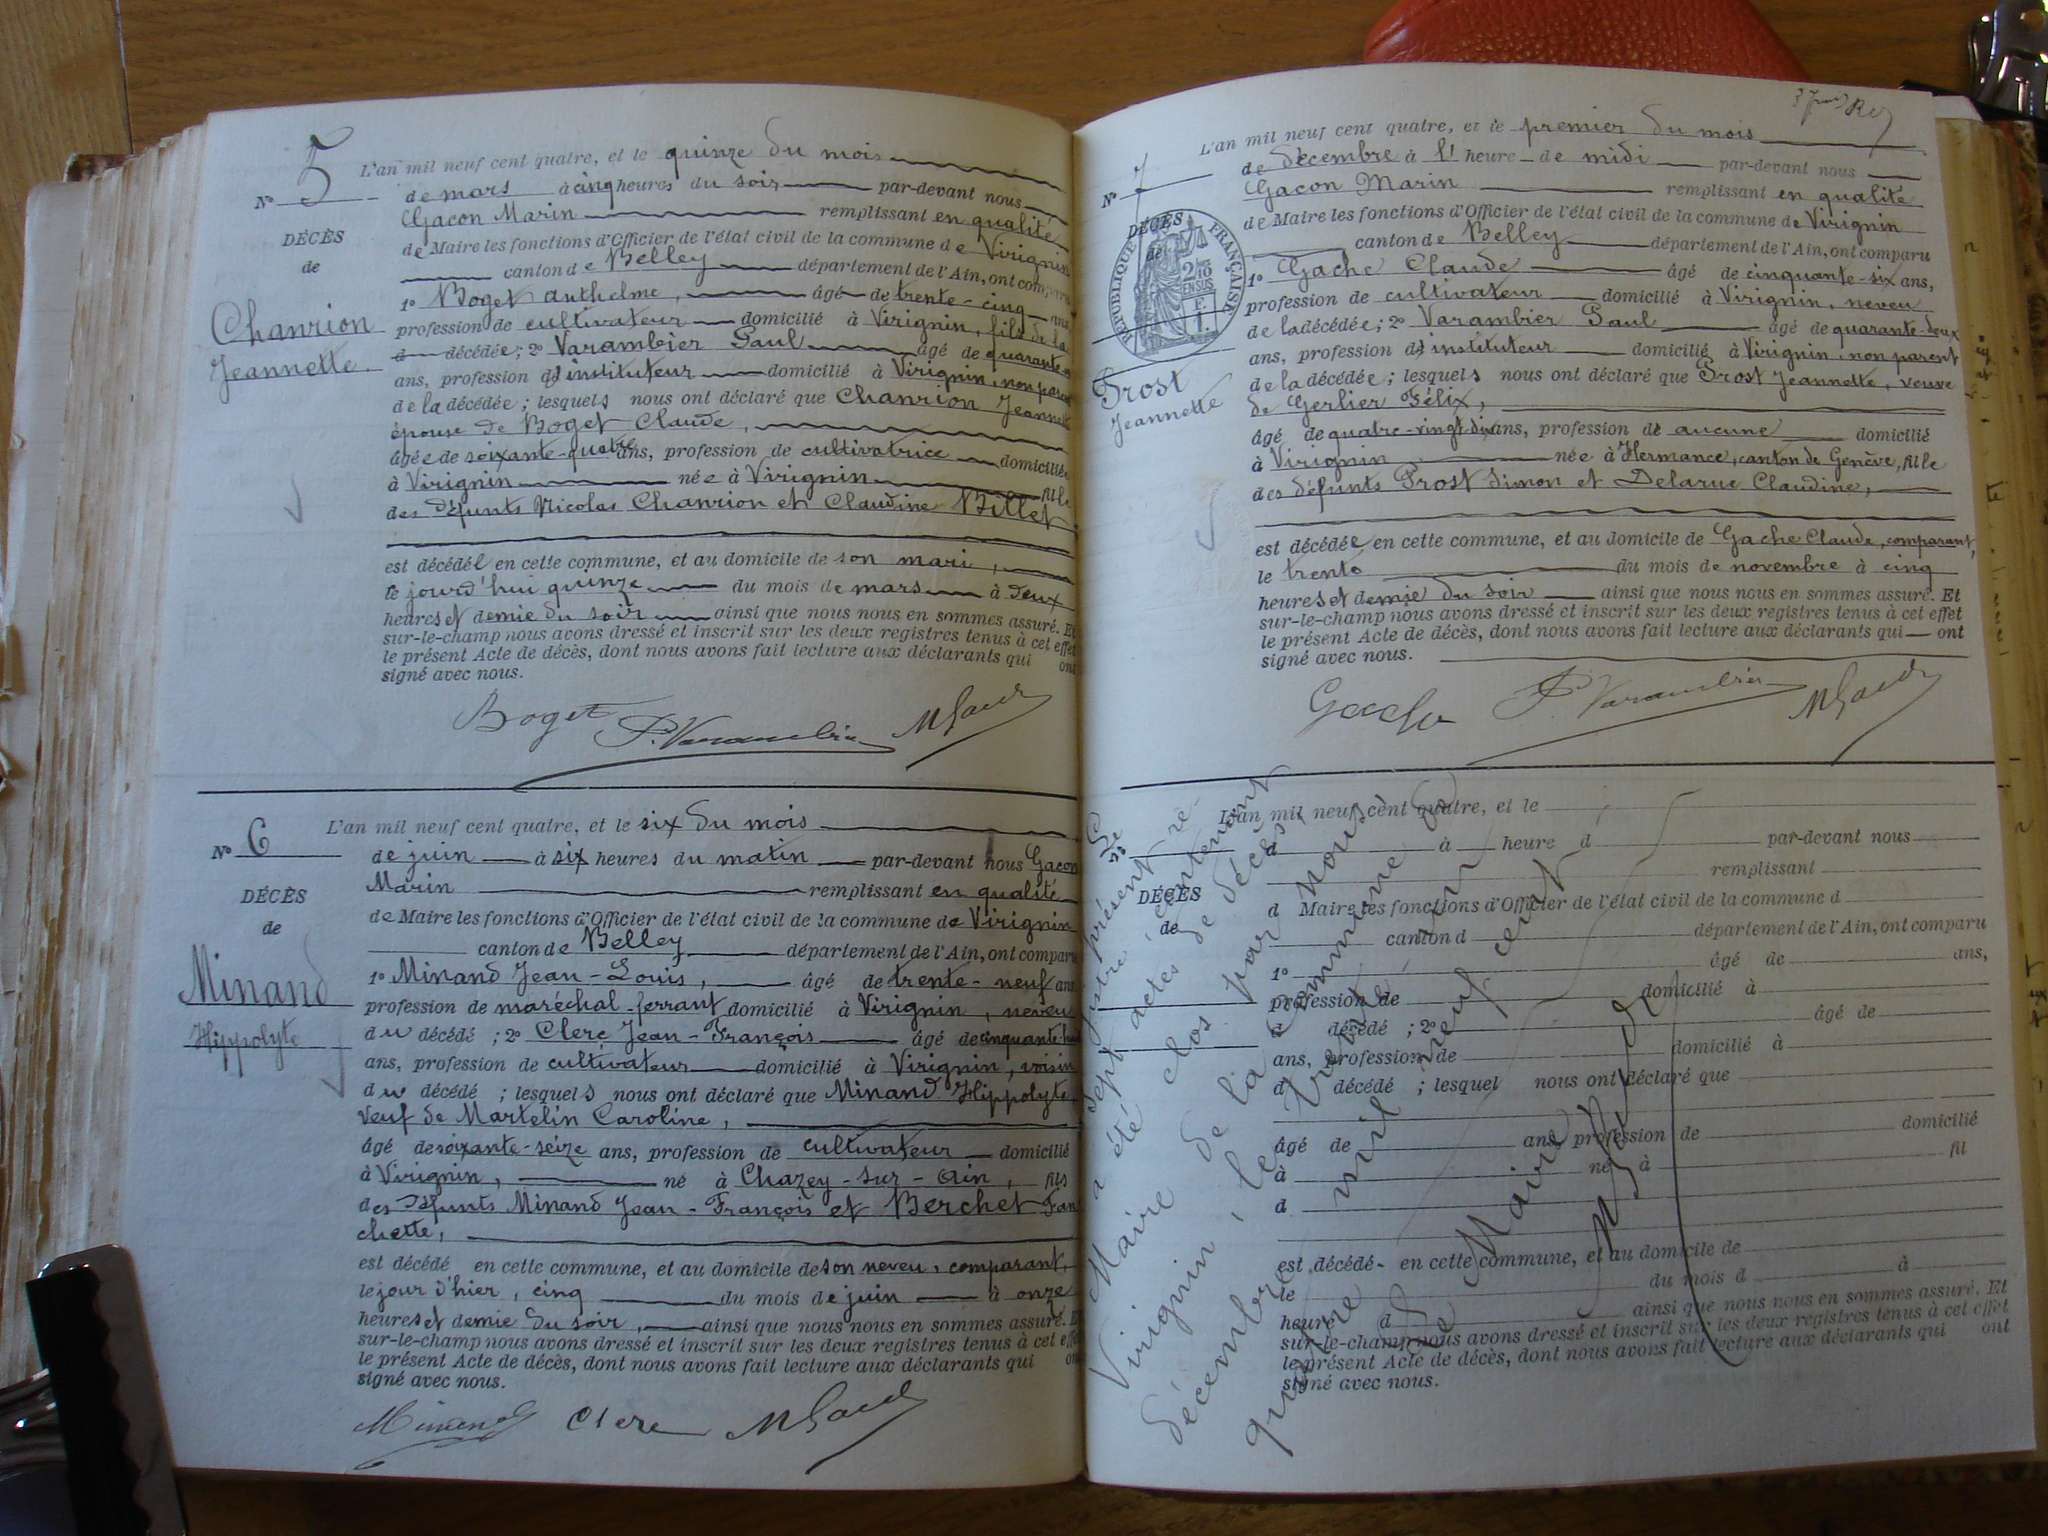 5
L'an mil neuf cent quatre, et le quinze du mois
N°
de mars à cinq heures du soir par-devant nous
Gacon Marin remplissant en qualité
DÉCÈS
de Maire les fonctions d'Officier de l'état civil de la commune de Virignin
de
canton de Belley département de l'Ain, ont comparu
1° Boget Anthelme, âgé de trente-cinq ans,
Chanrion
profession de cultivateur domicilié à Virignin, fils de la
Jeannette
décédée; 2° Varambier Paul âgé de quarante
ans, profession d'instituteur domicilié à Virignin, non parent
de la décédée; lesquels nous ont déclaré que Chanrion Jeannette
épouse de Boget Claude,
âgée de soixante-quatre ans, profession de cultivatrice domiciliée
à Virignin née à Virignin fille
des défunts Nicolas Chanrion et Claudine Billet
est décédée en cette commune, et au domicile de son mari,
le jourd'hui quinze du mois de mars à deux
heures et demie du soir ainsi que nous nous en sommes assuré. Et
sur-le-champ nous avons dressé et inscrit sur les deux registres tenus à cet effet
le présent Acte de décès, dont nous avons fait lecture aux déclarants qui ont
signé avec nous.
Boget P. Varambier M Gacon
L'an mil neuf cent quatre, et le six du mois
N° 6
de juin à six heures du matin par-devant nous Gacon
Marin remplissant en qualité
DÉCÈS
de Maire les fonctions d'Officier de l'état civil de la commune de Virignin
de
canton de Belley département de l'Ain, ont comparu
Minand
1° Minand Jean-Louis, âgé de trente-neuf ans
profession de maréchal-ferrant domicilié à Virignin, neveu
Hippolyte
du décédé; 2° Clerc Jean-François âgé de cinquante-huit
ans, profession de cultivateur domicilié à Virignin, voisin
du décédé; lesquels nous ont déclaré que Minand Hippolyte
veuf de Martelin Caroline,
âgé de soixante-seize ans, profession de cultivateur domicilié
à Virignin, né à Chazey-sur-Ain, fils
des défunts Minand Jean-François et Berchet Fan
chette,
est décédé en cette commune, et au domicile de son neveu, comparant,
le jour d'hier, cinq du mois de juin à onze
heures et demie du soir, ainsi que nous nous en sommes assuré. Et
sur-le-champ nous avons dressé et inscrit sur les deux registres tenus à cet effet
le présent Acte de décès, dont nous avons fait lecture aux déclarants qui ont
signé avec nous.
Minand Clerc M Gacon
L'an mil neuf cent quatre, et le premier du mois
N° 7
de décembre à l' heure de midi par-devant nous
Gacon Marin remplissant en qualité
DÉCÈS
de Maire les fonctions d'Officier de l'état civil de la commune de Virignin
de
RÉPUBLIQUE FRANÇAISE
canton de Belley département de l'Ain, ont comparu
1° Gache Claude âgé de cinquante-six ans,
profession de cultivateur domicilié à Virignin, neveu
de la décédée; 2° Varambier Paul âgé de quarante-deux
ans, profession d'instituteur domicilié à Virignin, non parent
Prost
de la décédée; lesquels nous ont déclaré que Prost Jeannette, veuve
Jeannette
de Gerlier Félix,
âgé de quatre-vingt-dix ans, profession de aucune domicilié
à Virignin née à Hermance, canton de Genève, fille
des défunts Prost Simon et Delarue Claudine,
est décédée en cette commune, et au domicile de Gache Claude, comparant,
le trente du mois de novembre à cinq
heures et demie du soir ainsi que nous nous en sommes assuré. Et
sur-le-champ nous avons dressé et inscrit sur les deux registres tenus à cet effet
le présent Acte de décès, dont nous avons fait lecture aux déclarants qui ont
signé avec nous.
Gache P. Varambier M Gacon
L'an mil neuf cent quatre, et le
N°
d à heure d par-devant nous
remplissant
DÉCÈS
d Maire les fonctions d'Officier de l'état civil de la commune d
de
canton d département de l'Ain, ont comparu
1° âgé de ans,
profession de domicilié à
d décédé; 2° âgé de
ans, profession de domicilié à
d décédé; lesquel nous ont déclaré que
âgé de ans profession de domicilié
à né à fil
d
est décédé en cette commune, et au domicile de
le du mois d à
heure d ainsi que nous nous en sommes assuré. Et
sur-le-champ nous avons dressé et inscrit sur les deux registres tenus à cet effet
le présent Acte de décès, dont nous avons fait lecture aux déclarants qui ont
signé avec nous.
Le présent re
gistre contenant
sept actes de décès,
a été clos par nous
Maire de la commune de
Virignin, le trente et un
décembre mil neuf cent
quatre
Le Maire
M Gacon